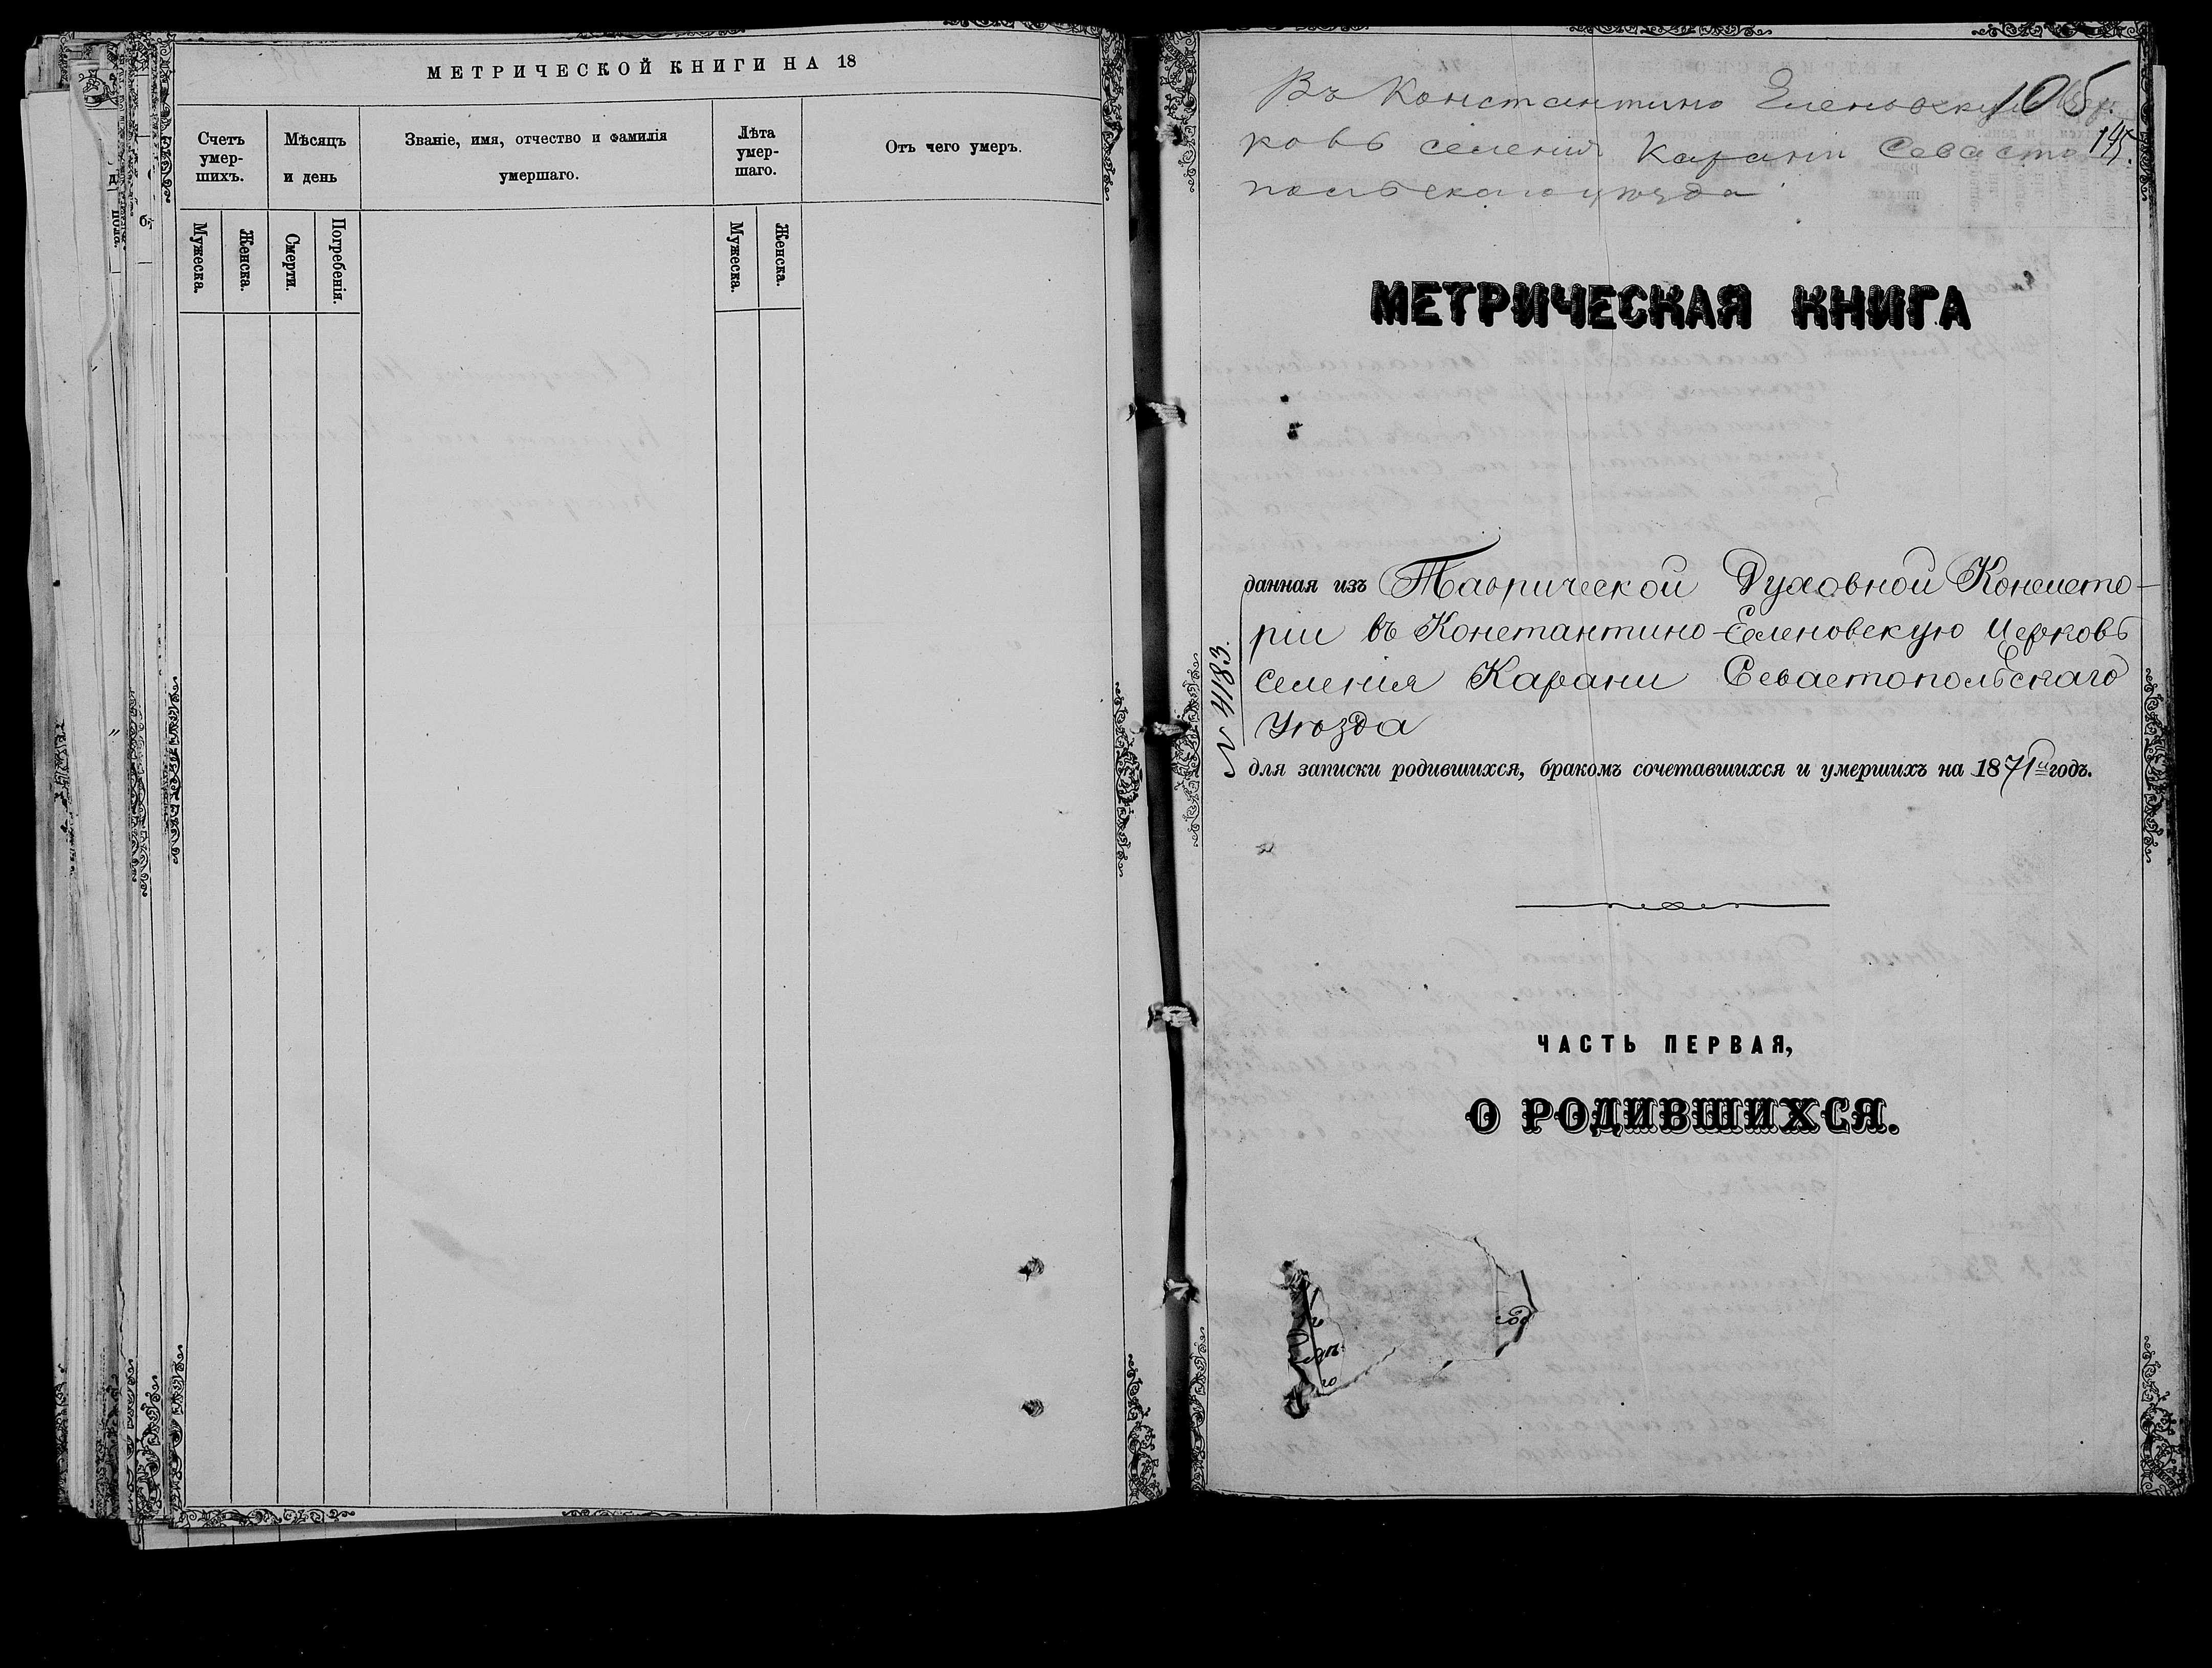 МЕТРИЧЕСКОЙ КНИГИ НА 18
Счетъ умер-шихъ.
Мѣсяцъ и день
Званіе, имя, отчество и фамилія умершаго.
Лѣта умер-шаго.
Отъ чего умеръ.
Мужеска.
Женска.
Смерти.
Погребенія.
Мужеска.
Женска.
105
145.
Въ Константино Еленовскую
ковь селенія Карани Севасто
польскаго уѣзда
МЕТРИЧЕСКАЯ КНИГА
данная изъ Таврической Духовной Консисто-
ріи въ Константино-Еленовскую Церковь
селенія Карани Севастопольскаго
Уѣзда
№ 4183.
для записки родившихся, бракомъ сочетавшихся и умершихъ на 1871й годъ.
ЧАСТЬ ПЕРВАЯ,
О РОДИВШИХСЯ.